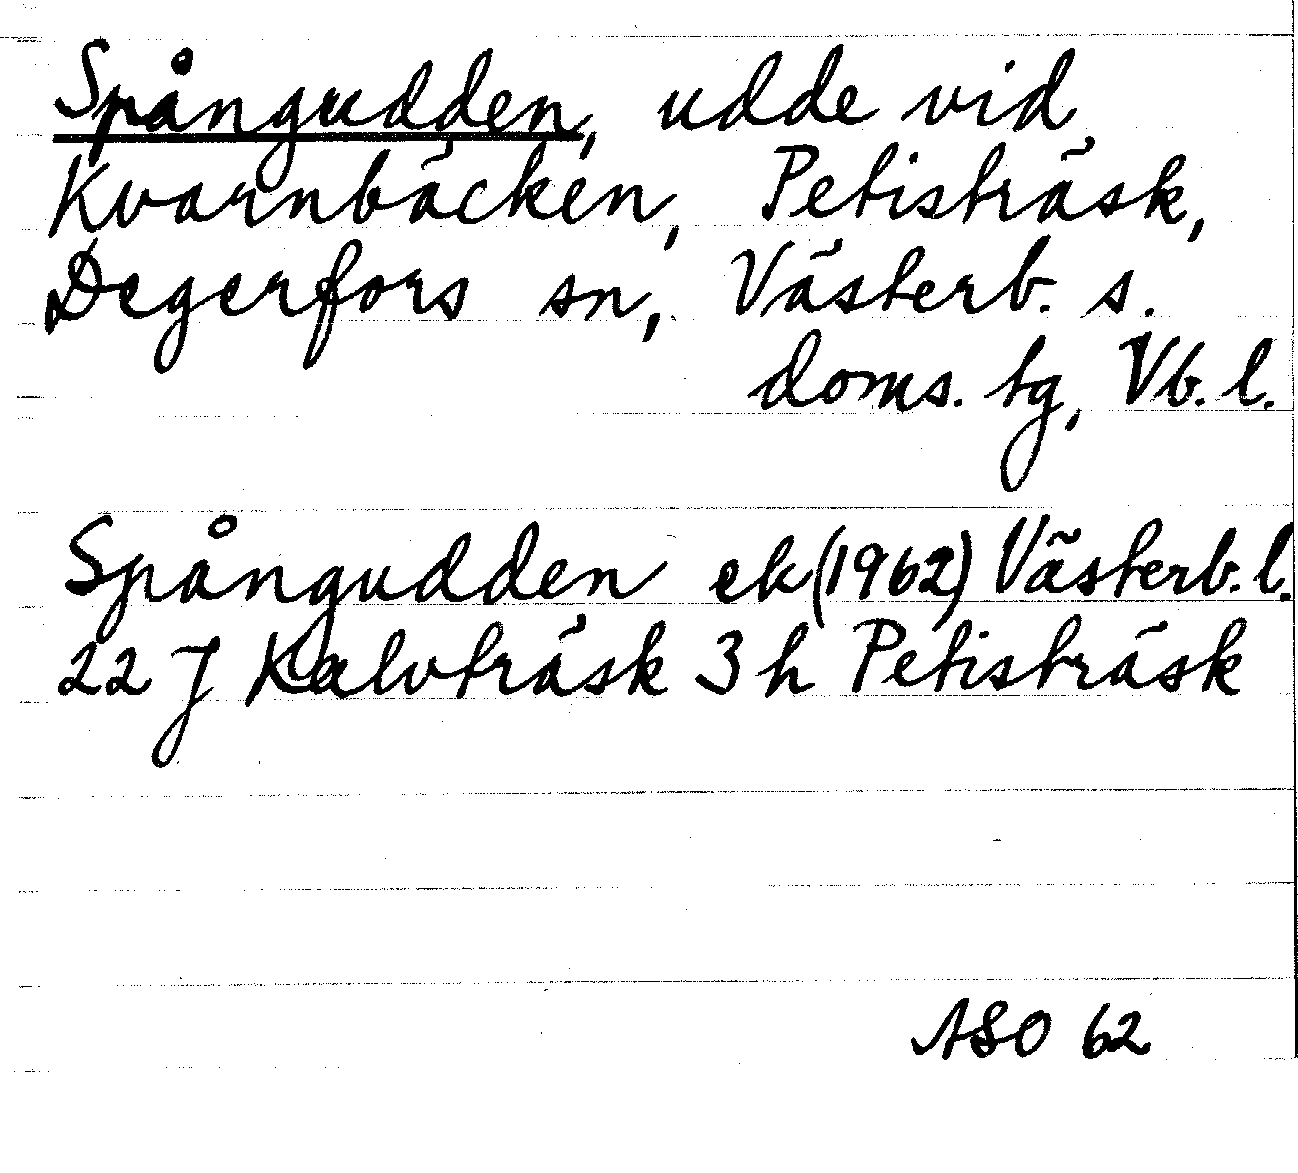 Spångudden, udde vid
Kvarnbäcken, Petisträsk,
Degerfors sn, Västerb. s.
doms. tg, Vb. l.
Spångudden ek (1962) Västerb. l.
22 J Kalvträsk 3 h Petisträsk
ASO 62